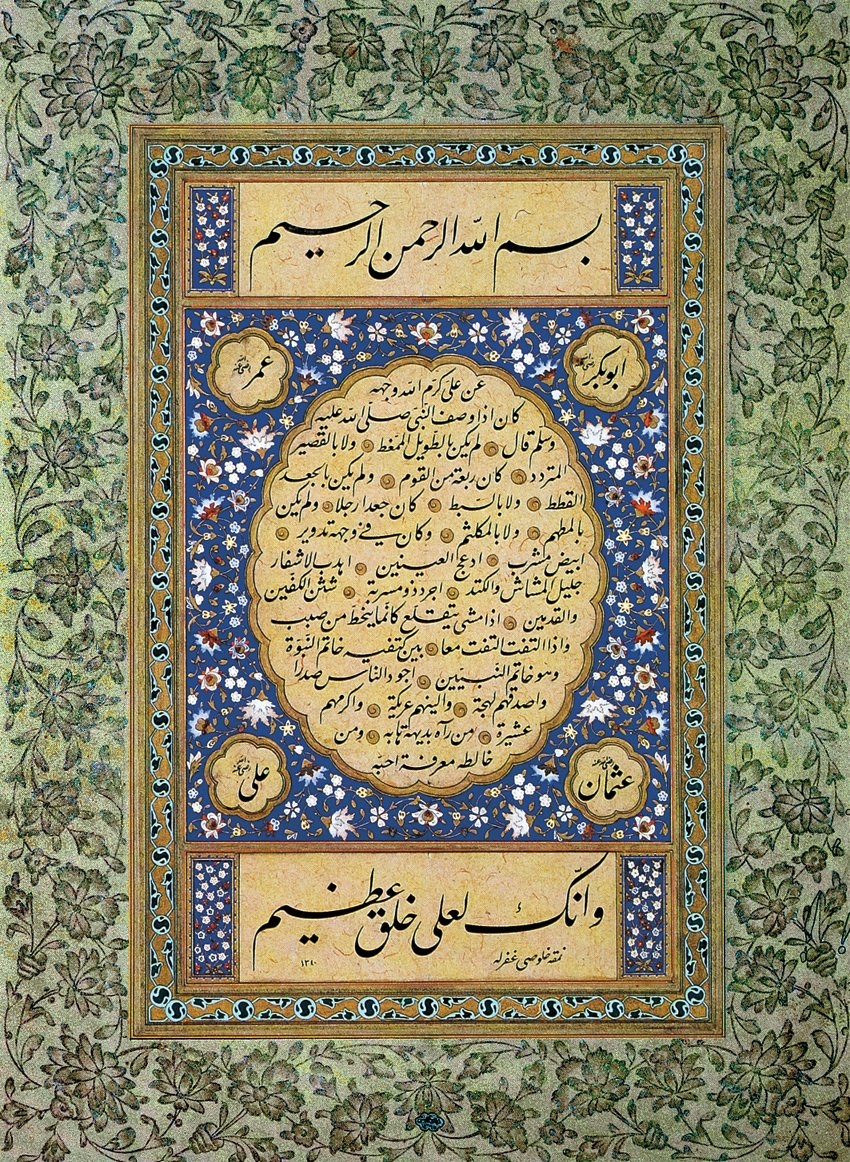 بسم الله الرحمن الرحيم
ابوبكر رضی الله عنه
عمر رضی الله عنه
عن علی كرم الله وجهه
كان اذا وصف النبی صلی الله عليه
وسلم قال لم يكن بالطويل الممغط ولا بالقصير
المتردد كان ربعة من القوم ولم يكن بالجعد
القطط ولا بالسبط كان جعدا رجلا ولم يكن
بالمطهم ولا بالمكلثم وكان فی وجهه تدوير
ابيض مشرب ادعج العينين اهدب الاشفار
جليل المشاش والكتد اجرد ذو مسربة شثن الكفين
والقدمين اذا مشی يتقلع كانما ينحط من صبب
واذا التفت التفت معا بين كتفيه خاتم النبوة
وهو خاتم النبيين اجود الناس صدرا
واصدقهم لهجة والينهم عريكة واكرمهم
عشيرة من رآه بديهة هابه ومن
خالطه معرفة احبه
عثمان رضی الله عنه
علی رضی الله عنه
وانك لعلی خلق عظيم
نمقه خلوصی غفرله